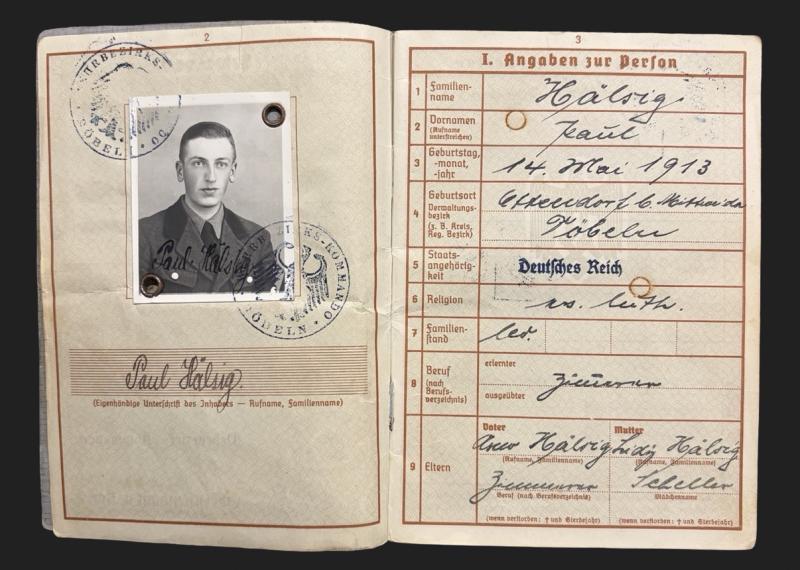 2
WEHRBEZIRKS-KOMMANDO
DÖBELN
Paul Hälsig
WEHRBEZIRKS-KOMMANDO
DÖBELN
Paul Hälsig
(Eigenhändige Unterschrift des Inhabers — Rufname, Familienname)
3
I. Angaben zur Person
1 Familien-
name
Hälsig
2 Vornamen
(Rufname
unterstreichen)
Paul
3 Geburtstag,
-monat,
-jahr
14. Mai 1913
4 Geburtsort
Verwaltungs-
bezirk
(z. B. Kreis,
Reg. Bezirk)
Ottendorf b. Mittweida
Döbeln
5 Staats-
angehörig-
keit
Deutsches Reich
6 Religion
ev. luth.
7 Familien-
stand
led.
8 Beruf
(nach
Berufs-
verzeichnis)
erlernter
Zimmerer
ausgeübter
9 Eltern
Vater Mutter
Hälsig Hälsig
(Rufname, Familienname) (Rufname, Familienname)
Zimmerer Scheller
Beruf (nach Berufsverzeichnis) Mädchenname
(wenn verstorben: † und Sterbejahr) (wenn verstorben: † und Sterbejahr)